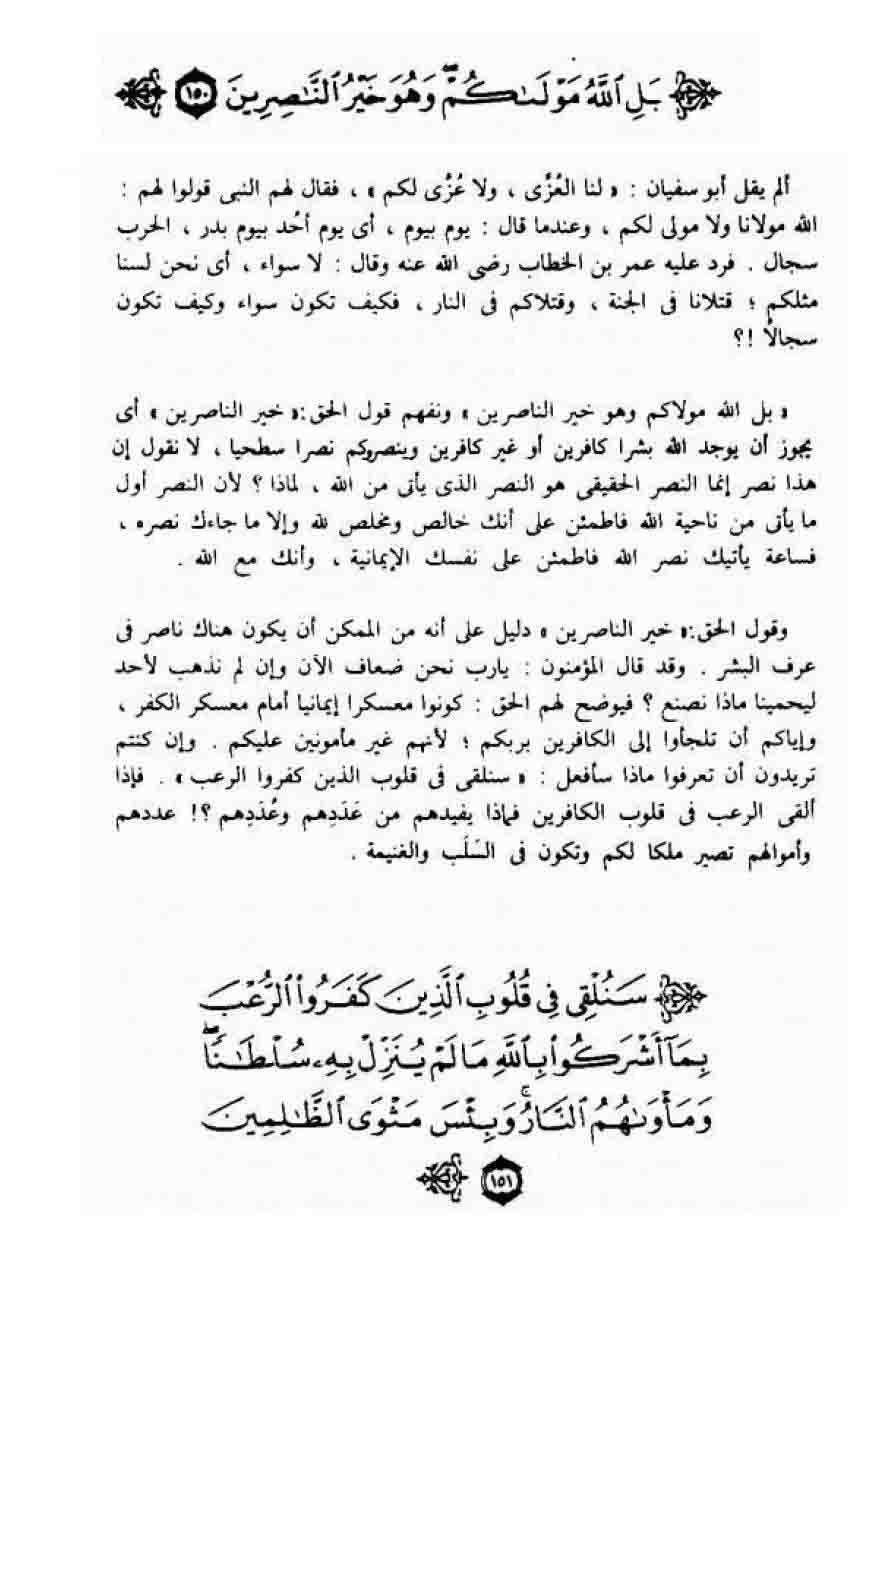 بَلِ ٱللَّهُ مَوْلَىٰكُمْ ۖ وَهُوَ خَيْرُ ٱلنَّٰصِرِينَ ١٥٠
ألم يقل أبو سفيان : « لنا العُزَّى ، ولا عُزَّى لكم » ، فقال لهم النبى قولوا لهم :
الله مولانا ولا مولى لكم ، وعندما قال : يوم بيوم ، أى يوم أُحد بيوم بدر ، الحرب
سجال . فرد عليه عمر بن الخطاب رضى الله عنه وقال : لا سواء ، أى نحن لسنا
مثلكم ؛ قتلانا فى الجنة ، وقتلاكم فى النار ، فكيف تكون سواء وكيف تكون
سجالاً !؟
« بل الله مولاكم وهو خير الناصرين » ونفهم قول الحق:« خير الناصرين » أى
يجوز أن يوجد الله بشرا كافرين أو غير كافرين وينصروكم نصرا سطحيا ، لا نقول إن
هذا نصر إنما النصر الحقيقى هو النصر الذى يأتى من الله ، لماذا ؟ لأن النصر أول
ما يأتى من ناحية الله فاطمئن على أنك خالص ومخلص لله وإلا ما جاءك نصره ،
فساعة يأتيك نصر الله فاطمئن على نفسك الإيمانية ، وأنك مع الله .
وقول الحق:« خير الناصرين » دليل على أنه من الممكن أن يكون هناك ناصر فى
عرف البشر . وقد قال المؤمنون : يارب نحن ضعاف الآن وإن لم نذهب لأحد
ليحمينا ماذا نصنع ؟ فيوضح لهم الحق : كونوا معسكرا إيمانيا أمام معسكر الكفر ،
وإياكم أن تلجأوا إلى الكافرين بربكم ؛ لأنهم غير مأمونين عليكم . وإن كنتم
تريدون أن تعرفوا ماذا سأفعل : « سنلقى فى قلوب الذين كفروا الرعب » . فإذا
ألقى الرعب فى قلوب الكافرين فماذا يفيدهم من عَدَدِهم وعُدَدِهم ؟! عددهم
وأموالهم تصير ملكا لكم وتكون فى السَّلَب والغنيمة .
سَنُلْقِى فِى قُلُوبِ ٱلَّذِينَ كَفَرُوا۟ ٱلرُّعْبَ
بِمَآ أَشْرَكُوا۟ بِٱللَّهِ مَا لَمْ يُنَزِّلْ بِهِۦ سُلْطَٰنًا ۖ
وَمَأْوَىٰهُمُ ٱلنَّارُ ۚ وَبِئْسَ مَثْوَى ٱلظَّٰلِمِينَ
١٥١